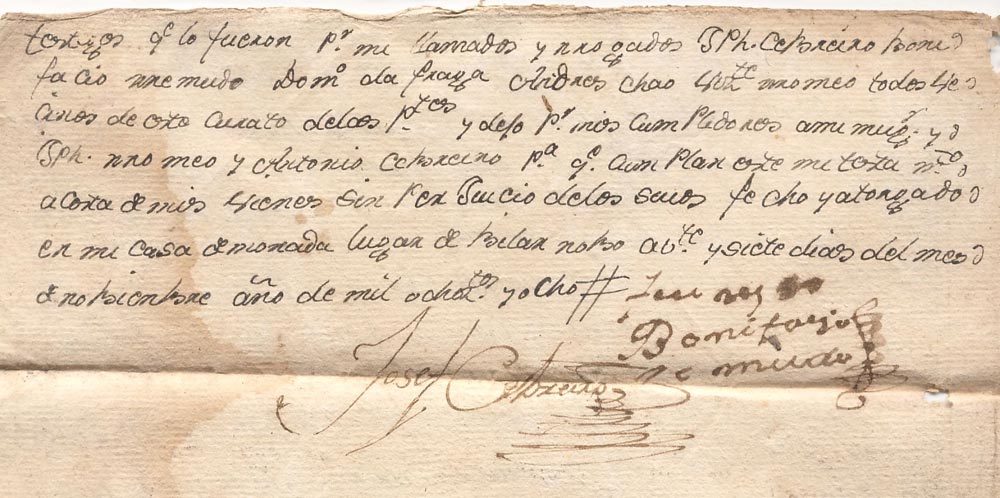 testigos qe lo fueron pr mi llamados y rrogados Jph. Cebreiro Boni
facio rremudo Domo da fraga Andres chao Vizte rromeo todos Ve
cinos de este Curato delces ptes y dejo pr mis Cumplidores a mi mugr. y
Jph. rromeo y Antonio Cebreiro pa qe Cumplan este mi testa mto
a costa de mis Vienes sin Per Juicio de los suios fe cho y atorgado
en mi casa de morada lugar de bilar nobo a bte y siete dias del mes
de nobienbre año de mil ochotos. y ocho #
Bonifazio
re mudo
Josef Cebreiro